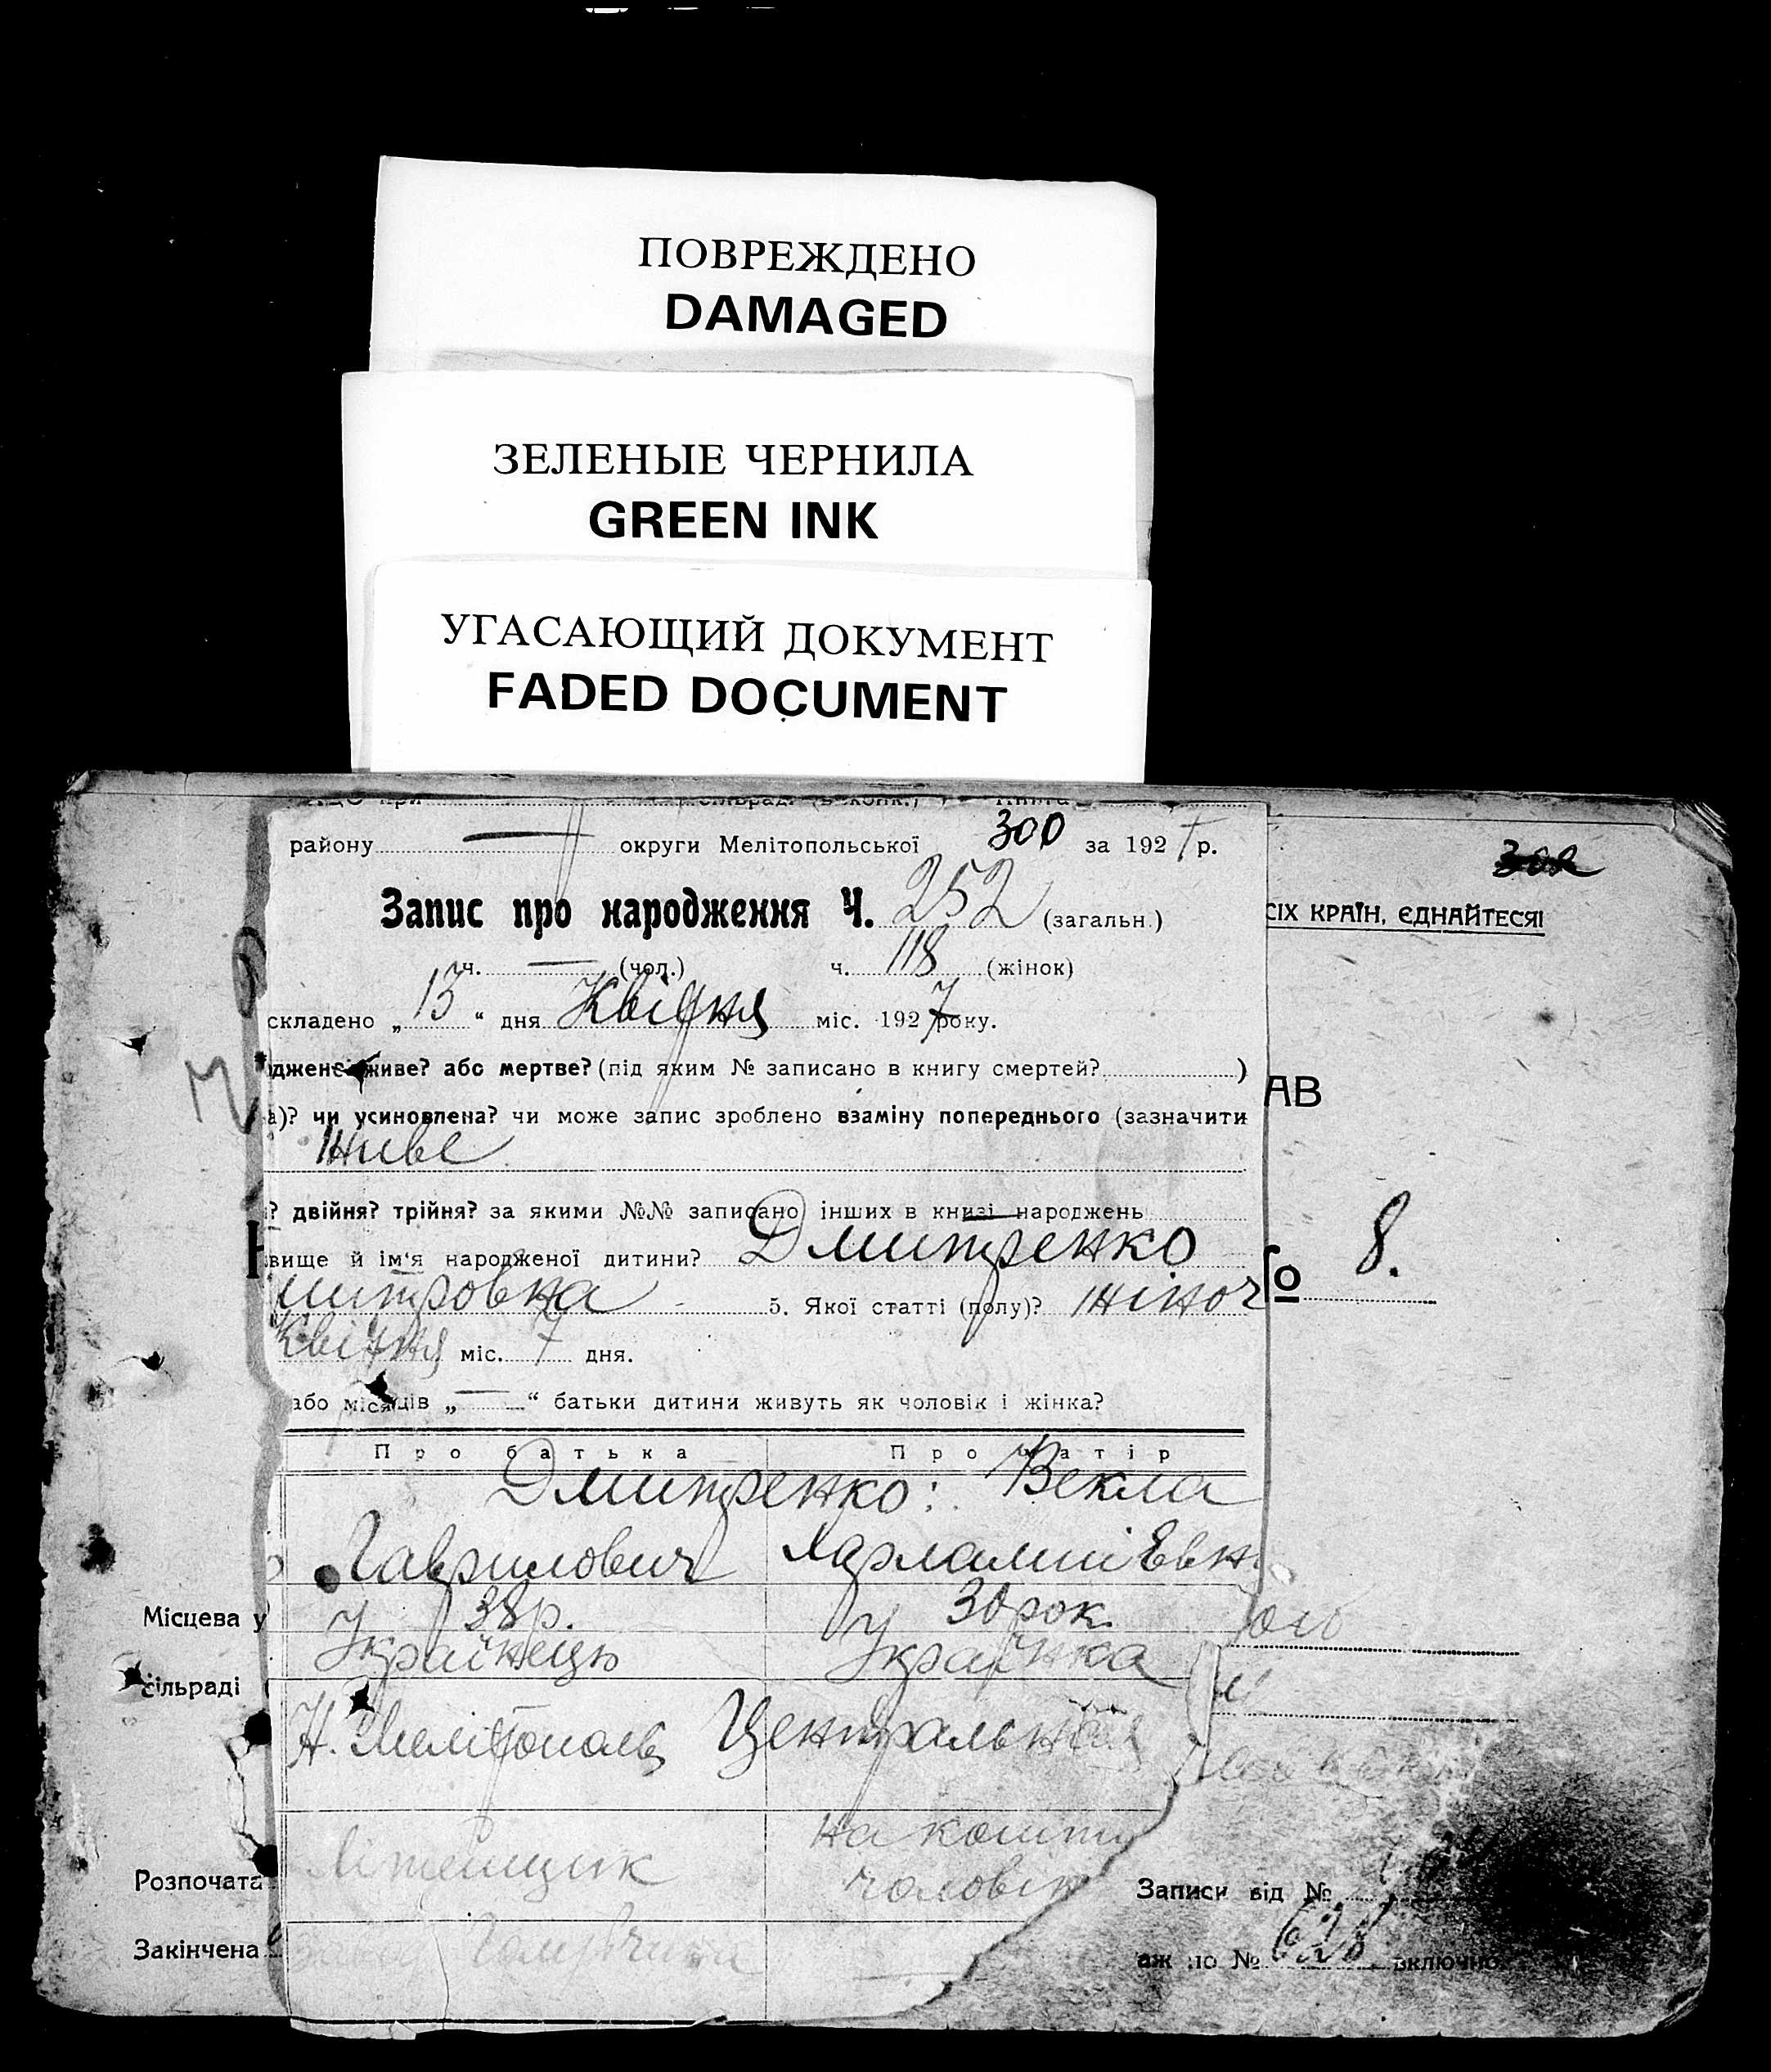 ПОВРЕЖДЕНО
DAMAGED
ЗЕЛЕНЫЕ ЧЕРНИЛА
GREEN INK
УГАСАЮЩИЙ ДОКУМЕНТ
FADED DOCUMENT
району — округи Мелітопольської 300 за 1927 р.
Запис про народження Ч. 252 (загальн.)
ч. — (чол.) ч. 118 (жінок)
складено „13“ дня Квітня міс. 1927 року.
джене живе? або мертве? (під яким № записано в книгу смертей? )
а)? чи усиновлена? чи може запис зроблено взаміну попереднього (зазначити
живе
? двійня? трійня? за якими №№ записано інших в книзі народжень —
вище й ім'я народженої дитини? Дмитренко
митровна 5. Якої статті (полу)? жіноч
Квітня міс. 7 дня.
або місяців „—“ батьки дитини живуть як чоловік і жінка?
Про батька Про матір
Дмитренко: Векла
Гаврилович Харлампіевн
38р. 30 рок.
Українець Українка
Н. Мелітополь Центральна
на кошти
Літейщик чоловік
СІХ КРАЇН, ЄДНАЙТЕСЯ!
АВ
8.
Місцева у
сільраді
Розпочата
Закінчена
Записи від №
аж по № 628 включно